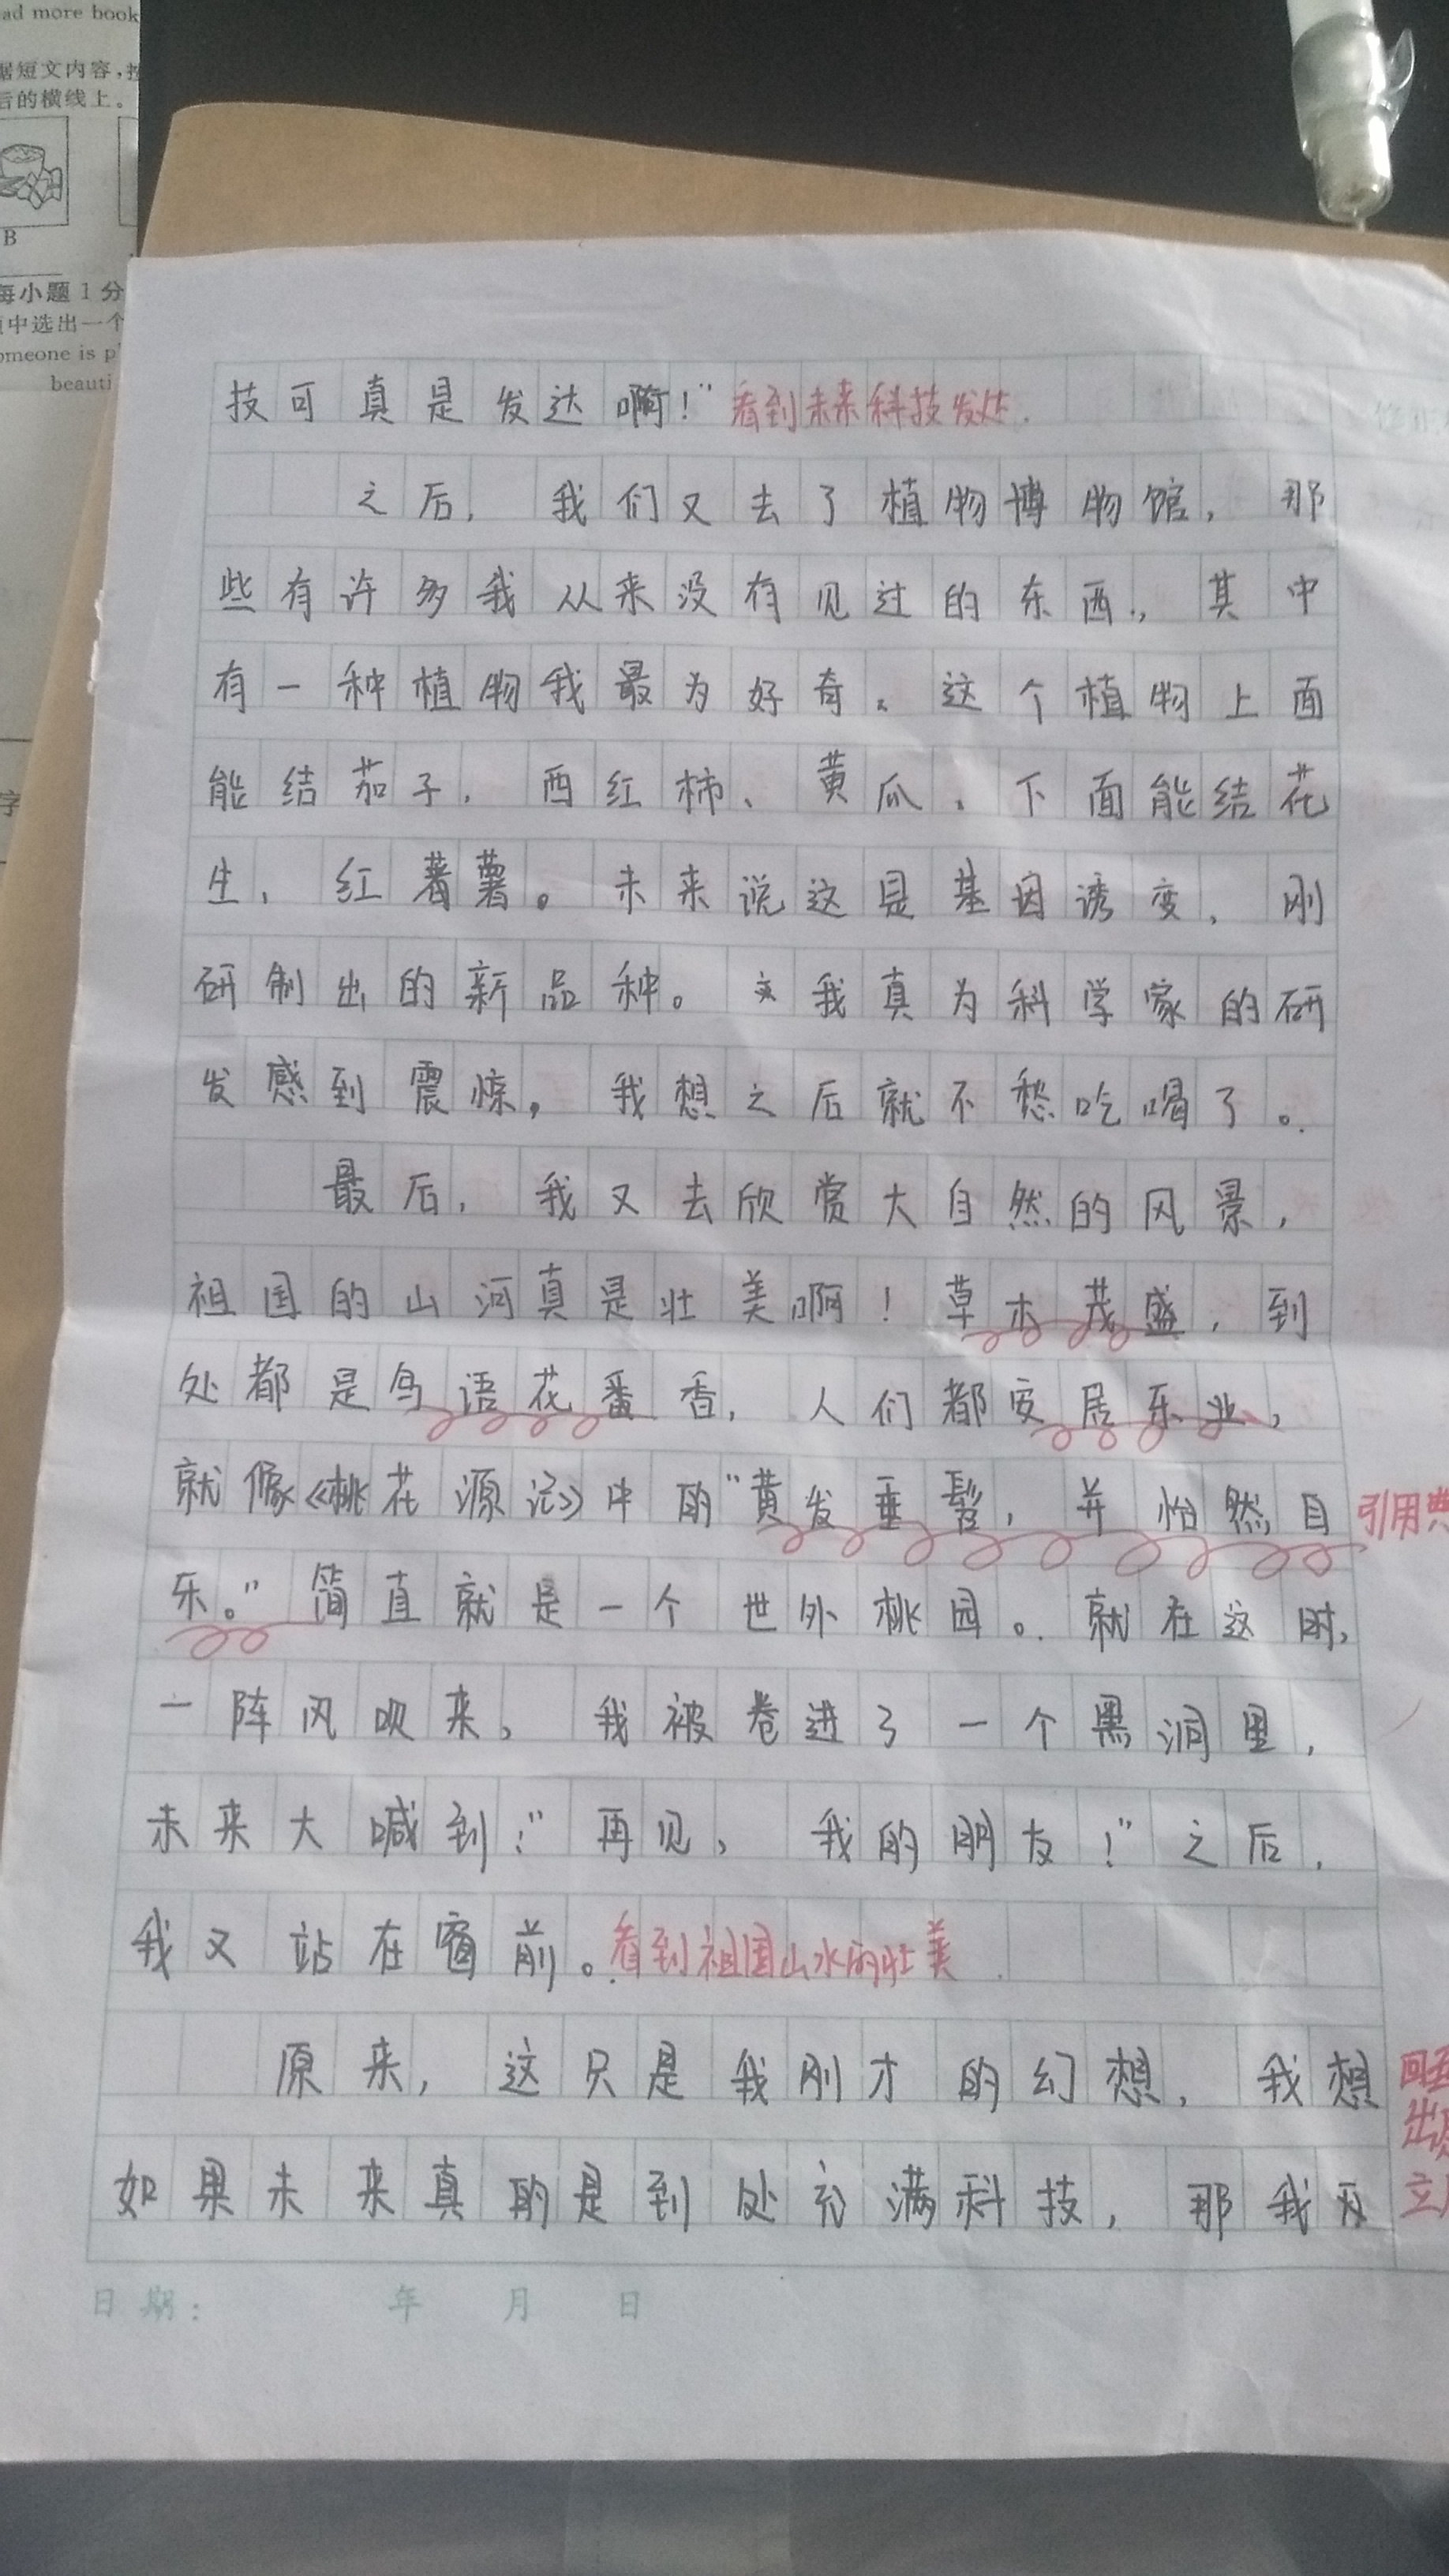 ad more book
据短文内容,按
后的横线上。
B
每小题1分
中选出一个
omeone is p
beauti
字
技可真是发达啊!”看到未来科技发达.
之后,我们又去了植物博物馆,那
些有许多我从来没有见过的东西,其中
有一种植物我最为好奇。这个植物上面
能结茄子,西红柿、黄瓜,下面能结花
生,红薯薯。未来说这是基因诱变,刚
研制出的新品种。我真为科学家的研
发感到震惊,我想之后就不愁吃喝了。
最后,我又去欣赏大自然的风景,
祖国的山河真是壮美啊!草木茂盛,到
处都是鸟语花番香,人们都安居乐业,
就像《桃花源记》中的“黄发垂髫,并怡然自
引用典
乐。”简直就是一个世外桃园。就在这时,
一阵风吹来,我被卷进了一个黑洞里,
未来大喊到:“再见,我的朋友!”之后,
我又站在窗前。看到祖国山水的壮美
原来,这只是我刚才的幻想,我想
如果未来真的是到处充满科技,那我又
回到
立
日期: 年 月 日